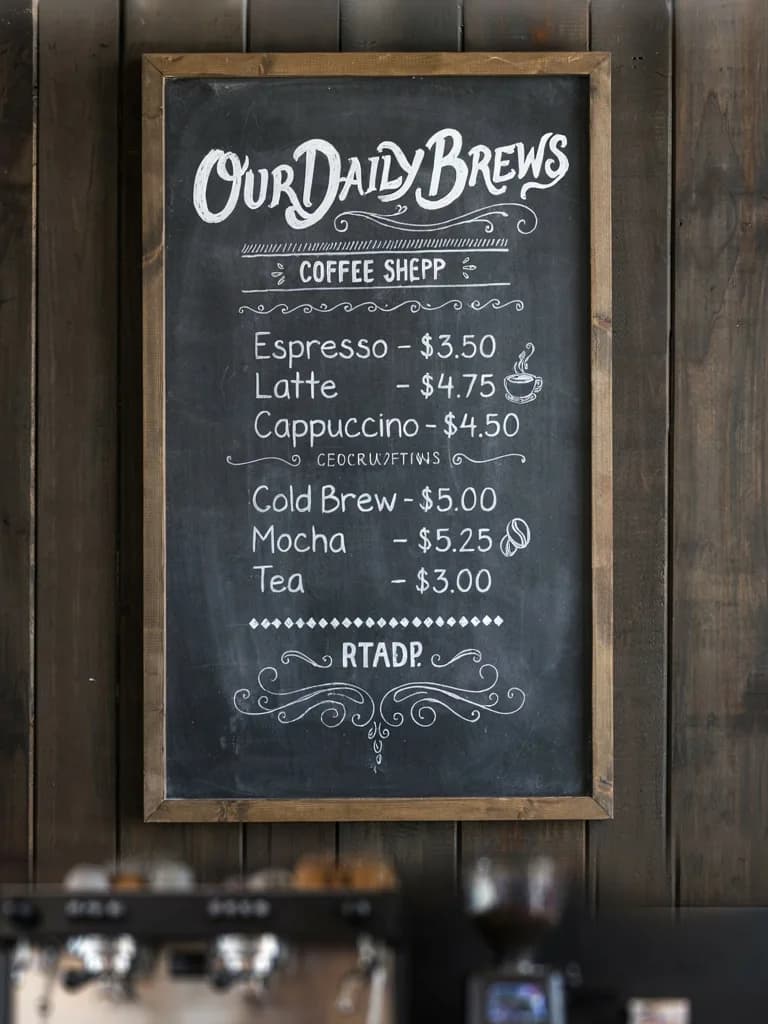 Our Daily Brews
COFFEE SHEPP
Espresso - $3.50
Latte - $4.75
Cappuccino - $4.50
Cold Brew - $5.00
Mocha - $5.25
Tea - $3.00
RTADP.